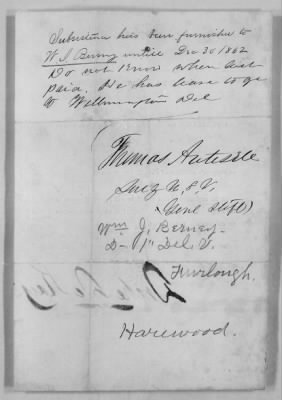 Subsistence has been furnished to
W. J. Berney until Dec 30 1862
Do not know when last
paid. He has leave to go
to Wilmington Del
Thomas Antisell
Surg U.S.V.
Wm J. Berney
D- 1st Del. V.
Furlough.
Harewood.